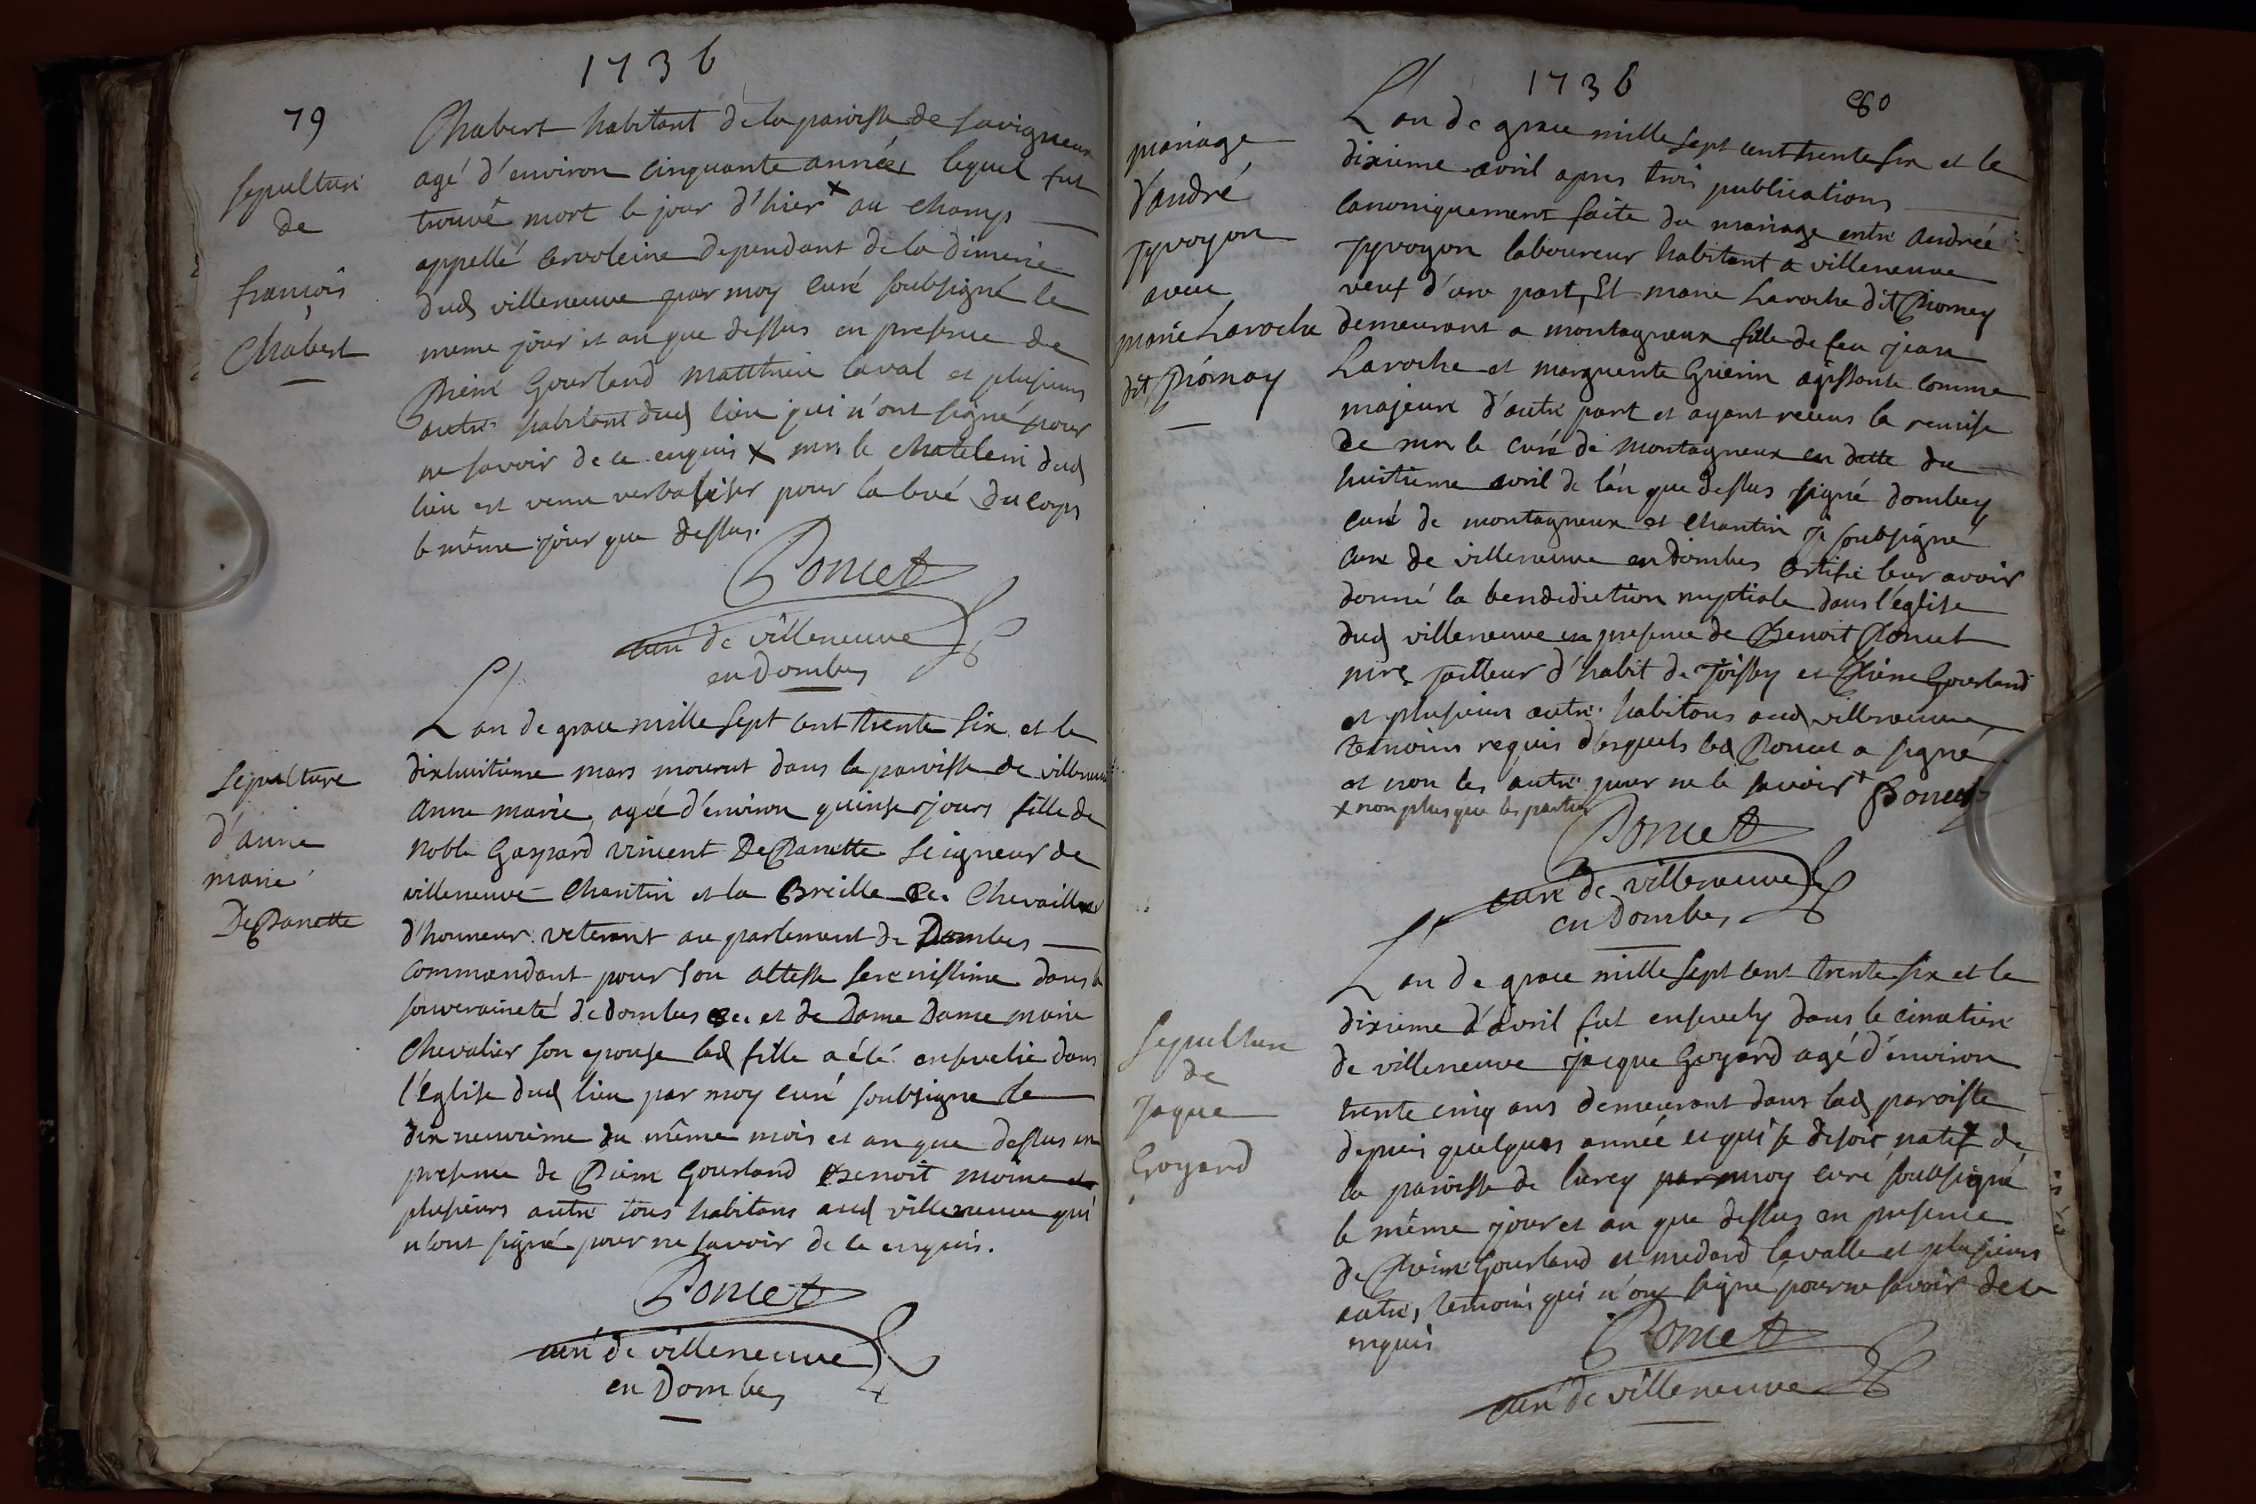 1736
79
Sepulture
de
françois
Chabert
Chabert habitant de la paroisse de Savigneux
agé d'environ cinquante années lequel fut
trouvé mort le jour d'hier x au champs
appellé dependant de la dimerie
dud villeneuve par moy curé soubsigné le
meme jour et an que dessus en presence de
Pierre Gourland Matthieu laval et plusieurs
autre habitant dud lieu qui n'ont signé pour
ne savoir de ce enquis x mr le chatelein dud
lieu est venu verbaliser pour la levé du corps
le même jour que dessus.
Poncet
curé de villeneuve
en Dombes
Sepulture
d'anne
marie
DePanette
L'an de grace mille sept cent trente six et le
dixhuitieme mars mourut dans la paroisse de villeneuve
Anne marie, agée d'environ quinse jours fille de
Noble Gaspard vincent DePanette Seigneur de
villeneuve Chantin et la Breille &c. Chevaillier
d'honneur veterant au parlement de Dombes
commandant pour son altesse serenissime dans la
souveraineté de dombes &c. et de Dame Dame marie
Chevalier son epouse lad fille a été ensevelie dans
l'église dud lieu par moy curé soubsigne le
dix neuvieme du même mois et an que dessus en
presence de Pierre Gourland Benoit moine et
plusieurs autre tous habitans aud villeneuve qui
n'ont signé pour ne savoir de ce enquis.
Poncet
curé de villeneuve
en Dombes
1736
80
mariage
d'andré
Pyvoyon
avec
marie Laroche
dit Piornay
L'an de grace mille sept cent trente six et le
dixieme avril apres trois publications
canoniquement faite du mariage entre Andreé
Pyvoyon laboureur habitant a villeneuve
veuf d'une part, Et marie Laroche dit Piorney
demeurant a montagneux fille de feu jean
Laroche et marguerite Guerin agissante comme
majeure d'autre part et ayant receus la remise
de mr le curé de Montagneux en datte du
huitieme avril de l'an que dessus signé dombey
curé de montagneux et Chantin je soubsigné
curé de villeneuve en Dombes certifie leur avoir
donné la benediction nuptiale dans l'église
dud villeneuve en presence de Benoit Poncet
mre Tailleur d'habit de Toissey et Pierre Gourland
et plusieurs autre habitans aud villeneuve
temoins requis desquels led Poncet a signé
et non les autre pour ne le savoir x Poncet
x non plus que les parties
Poncet
curé de villeneuve
en Dombes
Sepulture
de
Jaque
Goyard
L'an de grace mille sept cent trente six et le
dixieme d'avril fut ensevely dans le cimetiere
de villeneuve jacque Goyard agé d'environ
trente cinq ans demeurant dans lad paroisse
depuis quelques année et qui se disoit natif de
la paroisse de lurcy par moy curé soubsigné
le même jour et an que dessus en presence
de Pierre Gourland et medard lavalle et plusieurs
autres temoins qui n'on signé pour ne savoir de ce
enquis
Poncet
curé de villeneuve